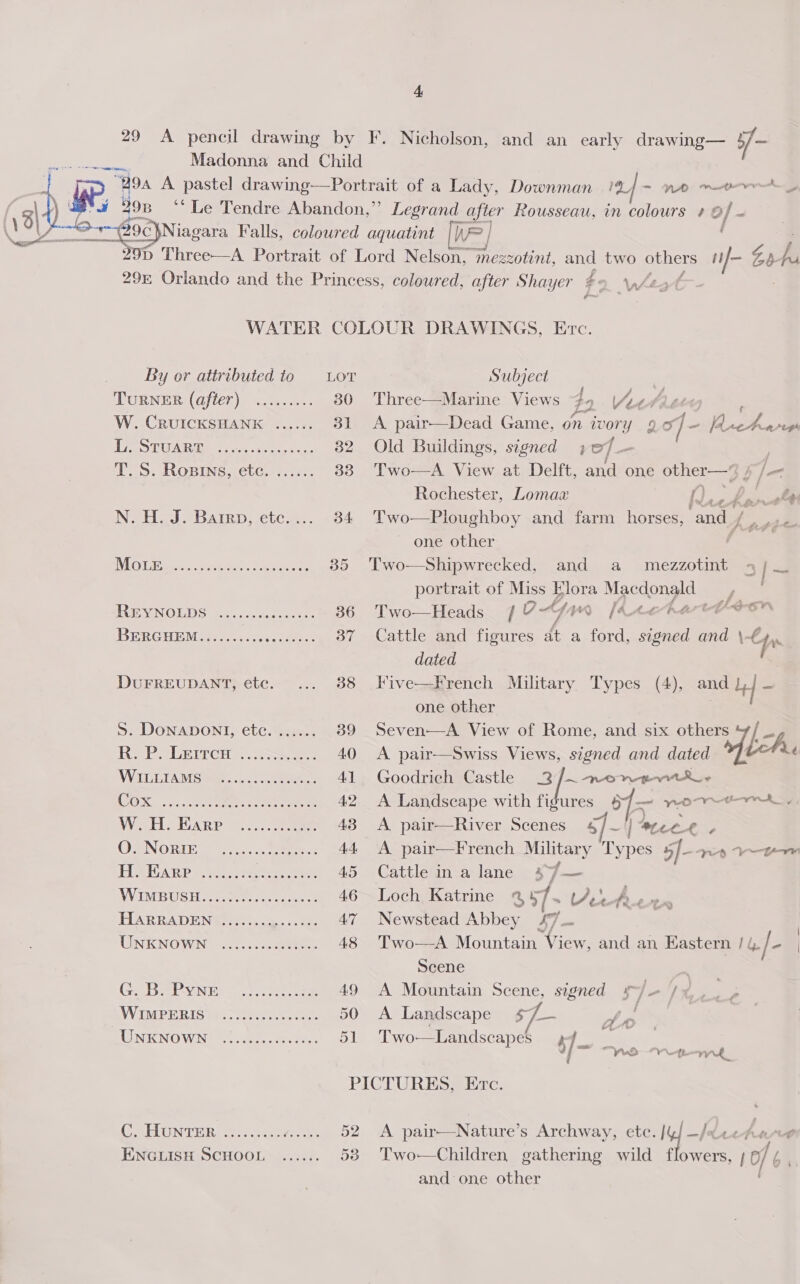 4
29 A pencil drawing by F. Nicholson, and an early drawing— 5/-
Madonna and Child
29A A pastel drawing—Portrait of a Lady, Downman 12/- no
29B “Le Tendre Abandon,” Legrand after Rousseau, in colours 10/-
29C Niagara Falls, coloured aquatint
29D Three—A Portrait of Lord Nelson, mezzotint, and two others 11/-
29E Orlando and the Princess, coloured, after Shayer
WATER COLOUR DRAWINGS, Etc.
By or attributed to LOT Subject
Turner (after) ......... 30 Three—Marine Views
W. Cruickshank ...... 31 A pair—Dead Game, on ivory 20/-
L. Stuart ............... 32 Old Buildings, signed 10/-
T. S. Robins, etc. ...... 33 Two—A View at Delft, and one other—
Rochester, Lomax
N. H. J. Baird, etc. ... 34 Two—Ploughboy and farm horses, and
one other
Mole ..................... 35 Two—Shipwrecked, and a mezzotint
portrait of Miss Flora Macdonald
Reynolds ............... 36 Two—Heads
Berghem .................. 37 Cattle and figures at a ford, signed and
dated
Dufreudant, etc. ... 38 Five—French Military Types (4), and
one other
S. Donadoni, etc. ...... 39 Seven—A View of Rome, and six others
R. P. Leitch ............ 40 A pair—Swiss Views, signed and dated
Williams ............... 41 Goodrich Castle 3/-
Cox ..................... 42 A Landscape with figures
W. H. Earp ............ 43 A pair—River Scenes
O. Norie ............... 44 A pair—French Military Types 5/-
H. Earp ............... 45 Cattle in a lane
Wimbush ............... 46 Loch Katrine
Harraden ............... 47 Newstead Abbey
Unknown ............... 48 Two—A Mountain View, and an Eastern
Scene
G. B. Pyne ............ 49 A Mountain Scene, signed
Wimperis ............... 50 A Landscape 5/-
Unknown ............... 51 Two—Landscapes
PICTURES, Etc.
C. Hunter ............... 52 A pair—Nature’s Archway, etc.
English School ...... 53 Two—Children gathering wild flowers,
and one other